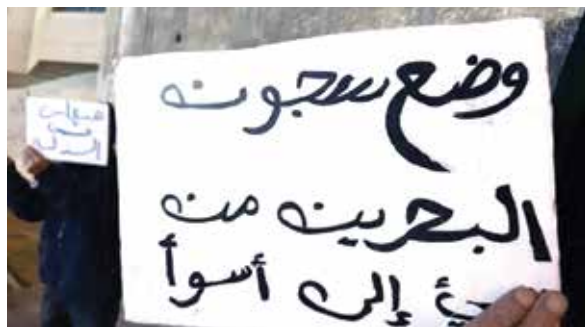 وضع سجون
البحرين من
إلى أسوأ